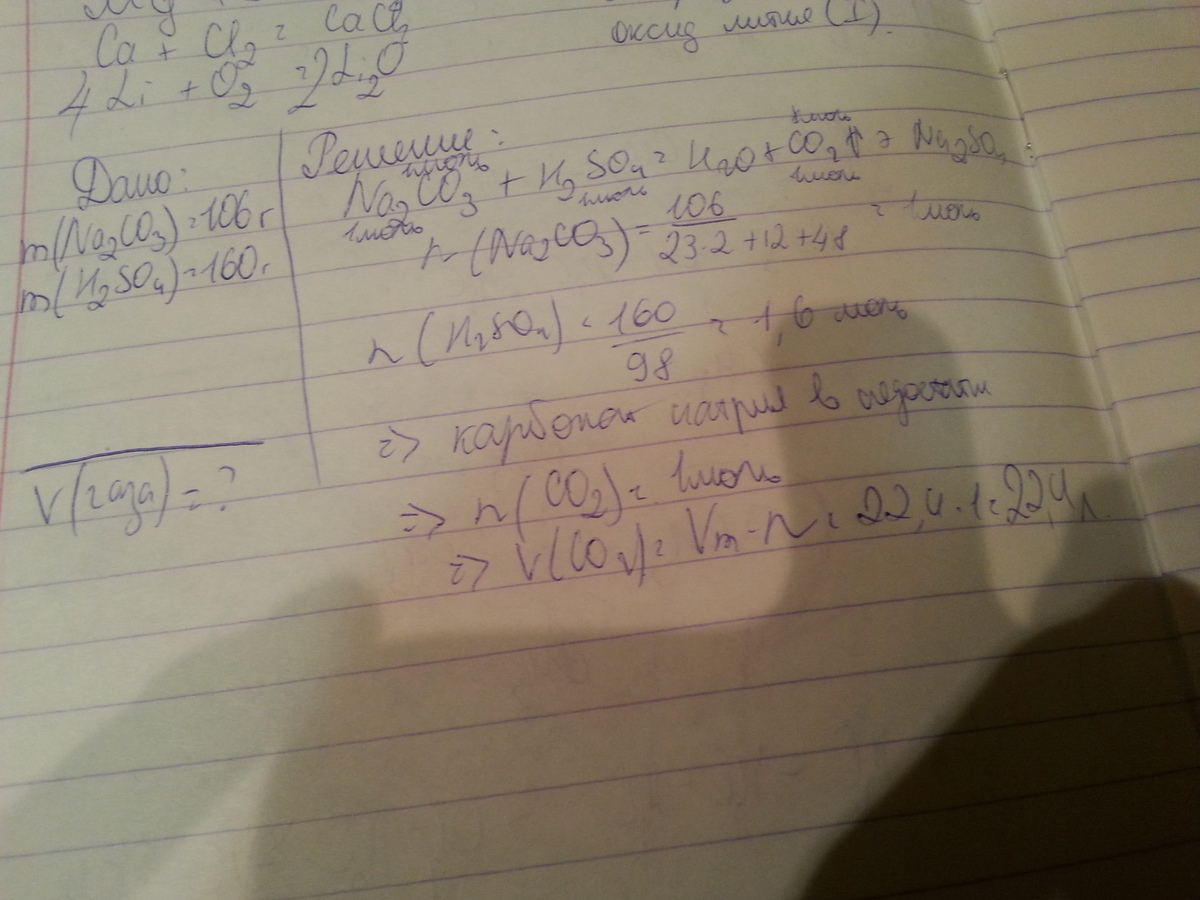 Mg
Ca + Cl2 = CaCl2
оксид лития (I).
4Li + O2 = 2Li2O
Дано:
m(Na2CO3) = 106 г
m(H2SO4) = 160 г
V(газа) = ?
Решение:
1моль 1моль
Na2CO3 + H2SO4 = H2O + CO2↑ + Na2SO4
1моль 1моль 1моль
n(Na2CO3) = 106 / 23·2+12+48 = 1моль
n(H2SO4) = 160 / 98 = 1,6 моль
=> карбонат натрия в недостатке
=> n(CO2) = 1моль
=> V(CO2) = Vm·n = 22,4·1 = 22,4 л.